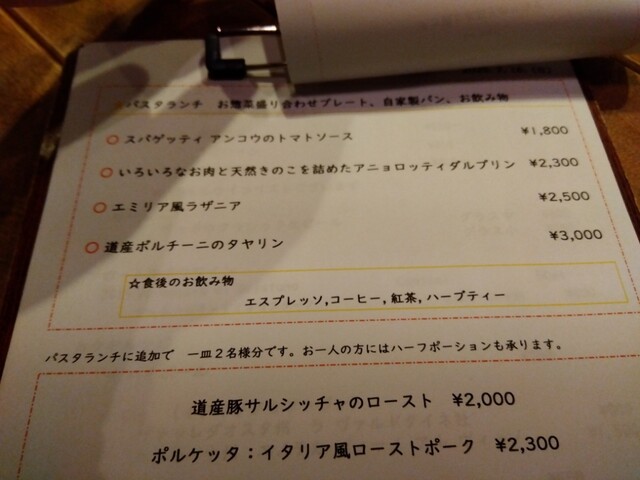 パスタランチ お惣菜盛り合わせプレート、自家製パン、お飲み物
○ スパゲッティ アンコウのトマトソース ¥1,800
○ いろいろなお肉と天然きのこを詰めたアニョロッティダルプリン ¥2,300
○ エミリア風ラザニア ¥2,500
○ 道産ポルチーニのタヤリン ¥3,000
☆食後のお飲み物
エスプレッソ,コーヒー,紅茶,ハーブティー
パスタランチに追加で 一皿2名様分です。お一人の方にはハーフポーションも承ります。
道産豚サルシッチャのロースト ¥2,000
ポルケッタ：イタリア風ローストポーク ¥2,300